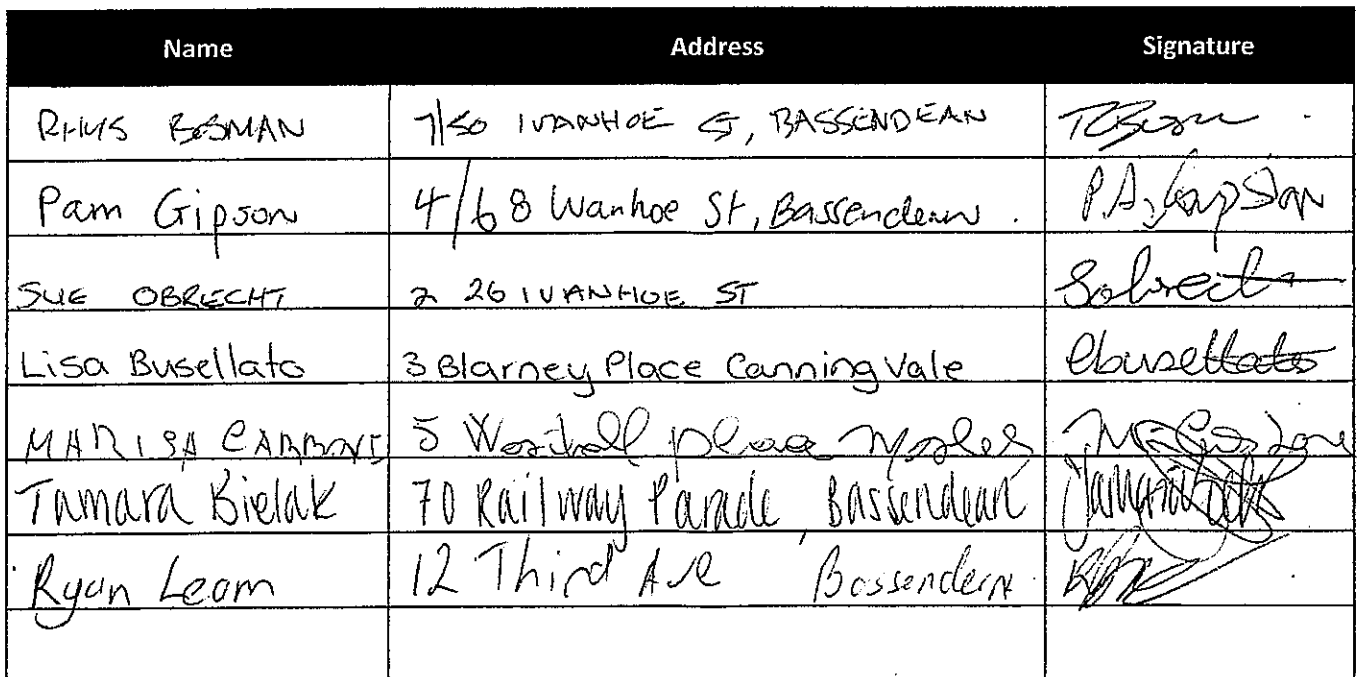 Name Address Signature
RHYS BOSMAN 7/50 IVANHOE ST, BASSENDEAN
Pam Gipson 4/68 Ivanhoe St, Bassendean. P.A. Gipson
SUE OBRECHT 2 26 IVANHOE ST Sobrecht
Lisa Busellato 3 Blarney Place Canning Vale lbusellato
MARISA 5 place
Tamara Bielak 70 Railway Parade, Bassendean
Ryan Leam 12 Third Ave Bassendean